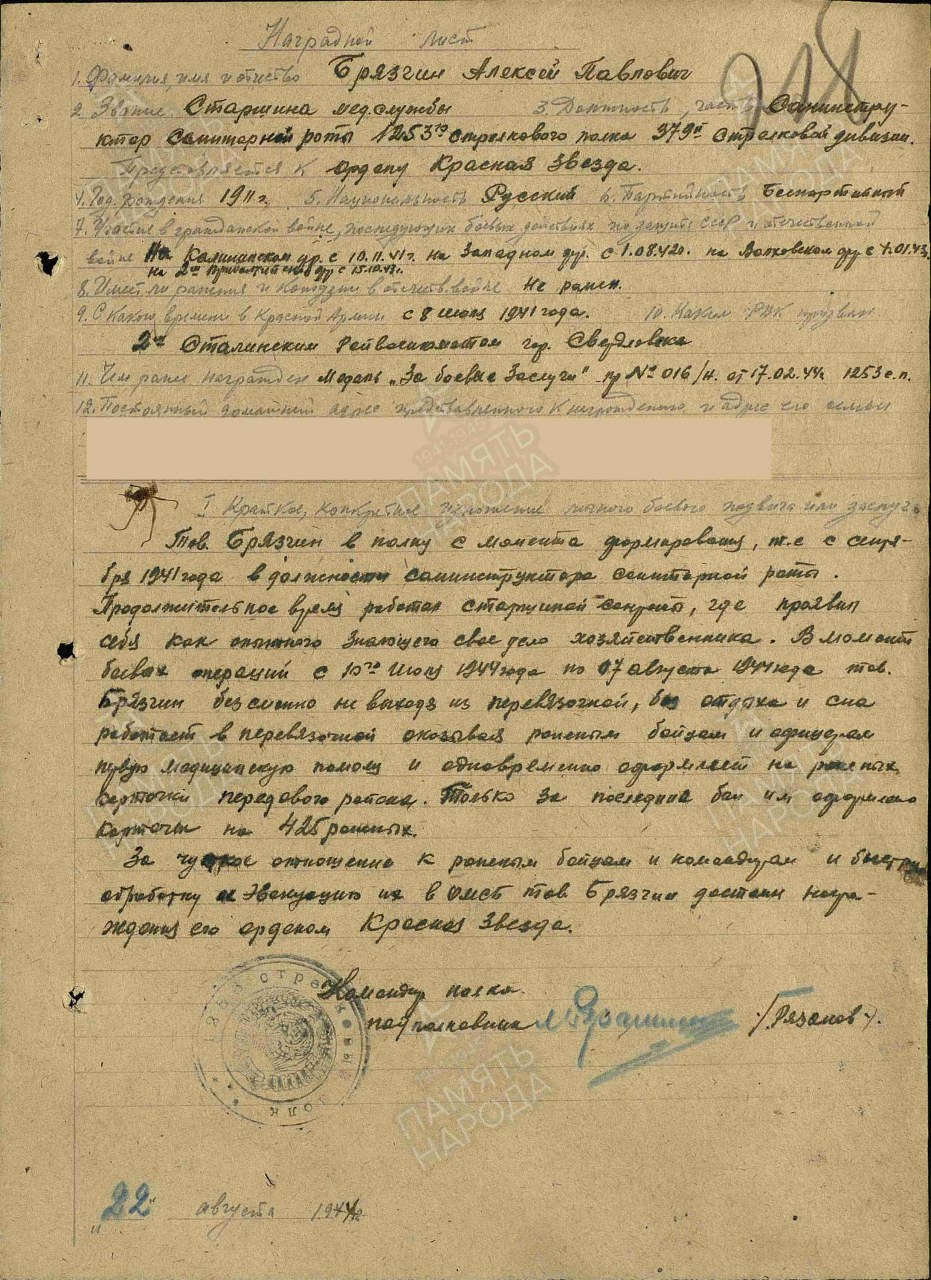 Наградной лист
218
1. Фамилия, имя и отчество Брязгин Алексей Павлович
2. Звание Старшина медслужбы 3. Должность, часть Санинстру-
ктор санитарной роты 1253го стрелкового полка 379й стрелковой дивизии.
Представляется к Ордену Красная Звезда.
4. Год рождения 1911 г. 5. Национальность Русский 6. Партийность Беспартийный
7. Участие в гражданской войне, последующих боевых действиях по защите СССР и отечественной
войне На Калининском фр. с 10.11.41г. на Западном фр. с 1.08.42г. на Волховском фр. с 1.01.43г.
на 2м Прибалтийском фр. с 15.10.43г.
8. Имеет ли ранения и контузии в отечеств. войне Не ранен.
9. С какого времени в Красной Армии с 8 июля 1941 года. 10. Каким РВК призван
2м Сталинским Райвоенкоматом гор. Свердловска
11. Чем ранее награжден Медаль „За боевые Заслуги" пр № 016/н. от 17.02.44г. 1253 с.п.
12. Постоянный домашний адрес представленного к награждению и адрес его семьи
I Краткое, конкретное изложение личного боевого подвига или заслуг.
Тов. Брязгин в полку с момента формирования, т.е. с сентя-
бря 1941 года в должности санинструктора санитарной роты.
Продолжительное время работал старшиной санроты, где проявил
себя как опытного знающего свое дело хозяйственника. В момент
боевых операций с 10го июля 1944 года по 07 августа 1944 года тов.
Брязгин бессменно не выходя из перевязочной, без отдыха и сна
работает в перевязочной оказывая раненым бойцам и офицерам
первую медицинскую помощь и одновременно оформляет на раненых
карточки передового района. Только за последние бои им оформлено
карточки на 425 раненых.
За чуткое отношение к раненым бойцам и командирам и быструю
обработку и эвакуацию их в омсб тов. Брязгин достоин награ-
ждения его орденом Красная Звезда.
Командир полка
подполковник /Рязанов/.
стрелковый полк
„22" августа 1944г
ПАМЯТЬ НАРОДА
1941-1945